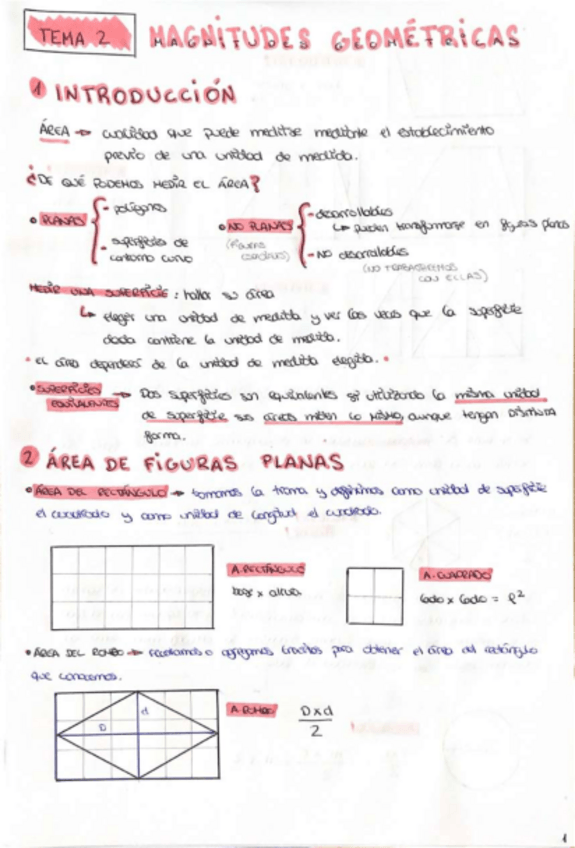 TEMA 2 MAGNITUDES GEOMÉTRICAS
1 INTRODUCCIÓN
ÁREA → cualidad que puede medirse mediante el establecimiento
previo de una unidad de medida.
¿DE QUÉ PODEMOS MEDIR EL ÁREA?
• PLANAS
- polígonos
- superficies de
contorno curvo
• NO PLANAS
- desarrollables
↳ pueden transformarse en figuras planas
- NO desarrollables
(NO TRABAJAREMOS
CON ELLAS)
MEDIR UNA SUPERFICIE: hallar su área
↳ elegir una unidad de medida y ver las veces que la superficie
dada contiene la unidad de medida.
• EL área dependerá de la unidad de medida elegida. •
• SUPERFICIES
EQUIVALENTES
→ Dos superficies son equivalentes si utilizando la misma unidad
de superficie sus áreas miden lo MISMO, aunque tengan distinta
forma.
2 ÁREA DE FIGURAS PLANAS
• ÁREA DEL RECTÁNGULO → tomamos la trama y definimos como unidad de superficie
el cuadrado y como unidad de longitud el cuadrado.
A. RECTÁNGULO
base x altura
A. CUADRADO
lado x lado = l²
• ÁREA DEL ROMBO → o agregamos para obtener el área del rectángulo
que conocemos.
d
D
A. ROMBO
D x d
2
1